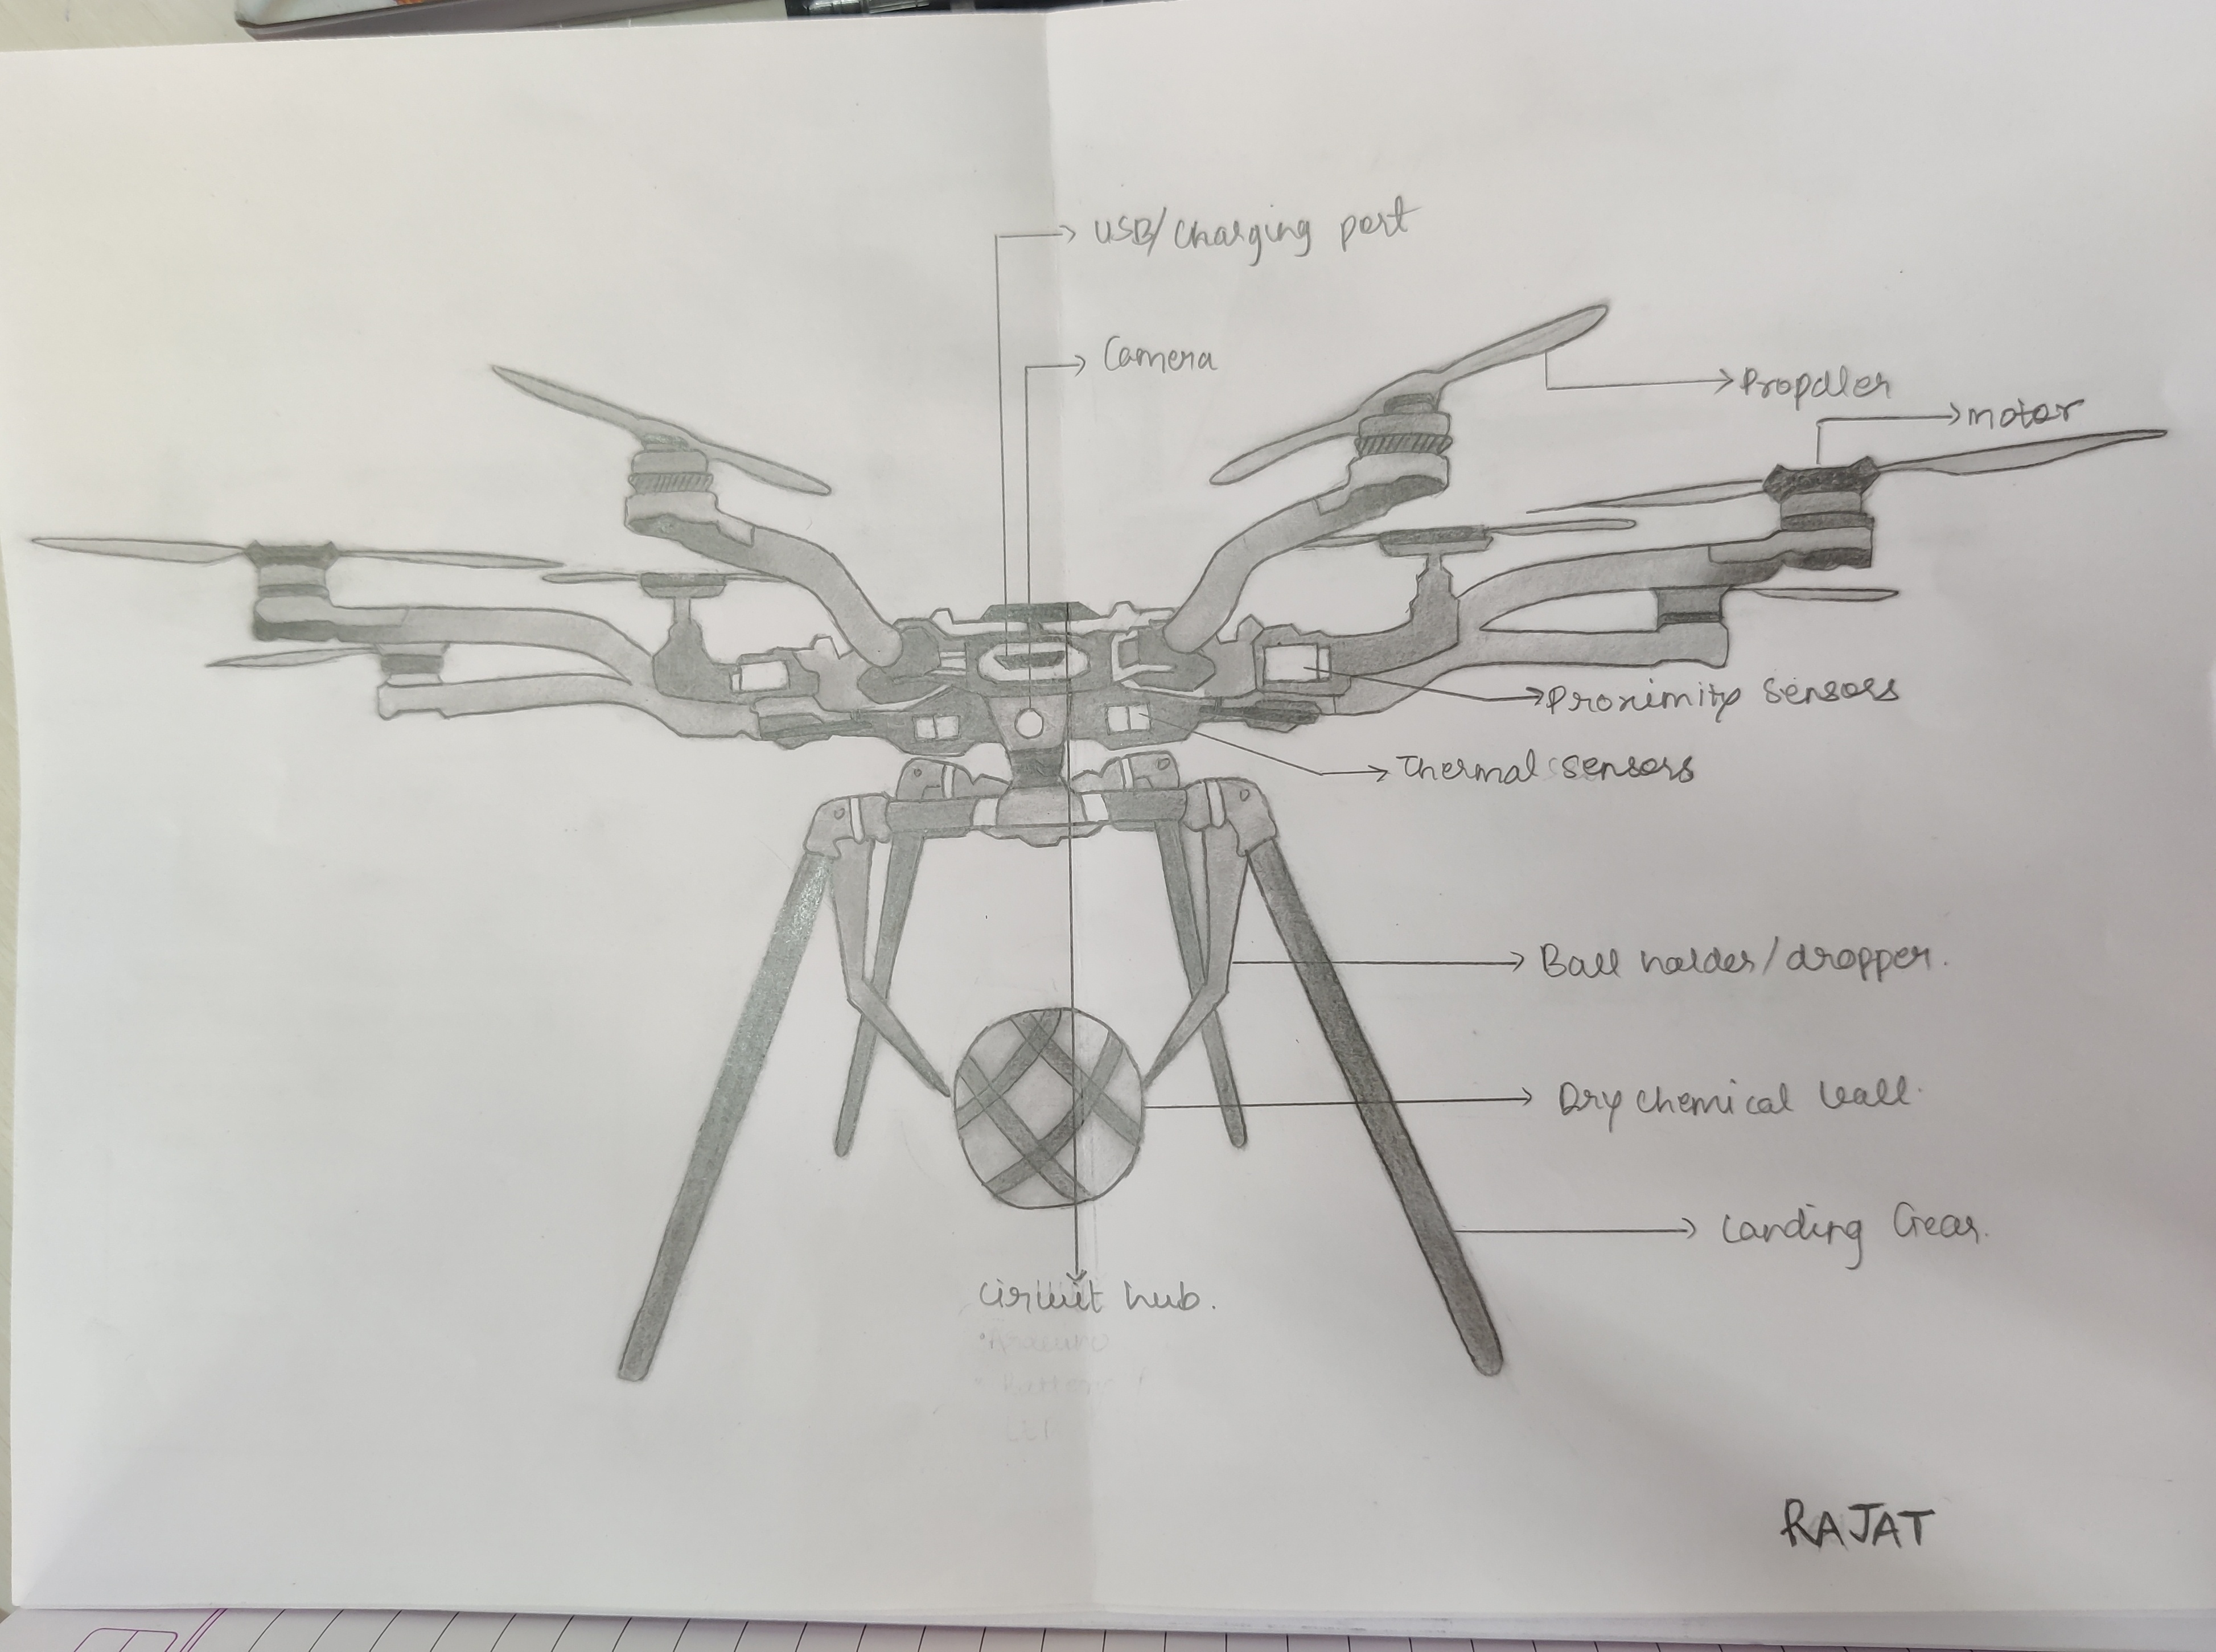 USB/charging port
Camera
Propeller
motor
Proximity Sensors
Thermal sensors
Ball holder/dropper.
Dry chemical ball.
Landing Gear.
circuit hub.
• Battery
RAJAT